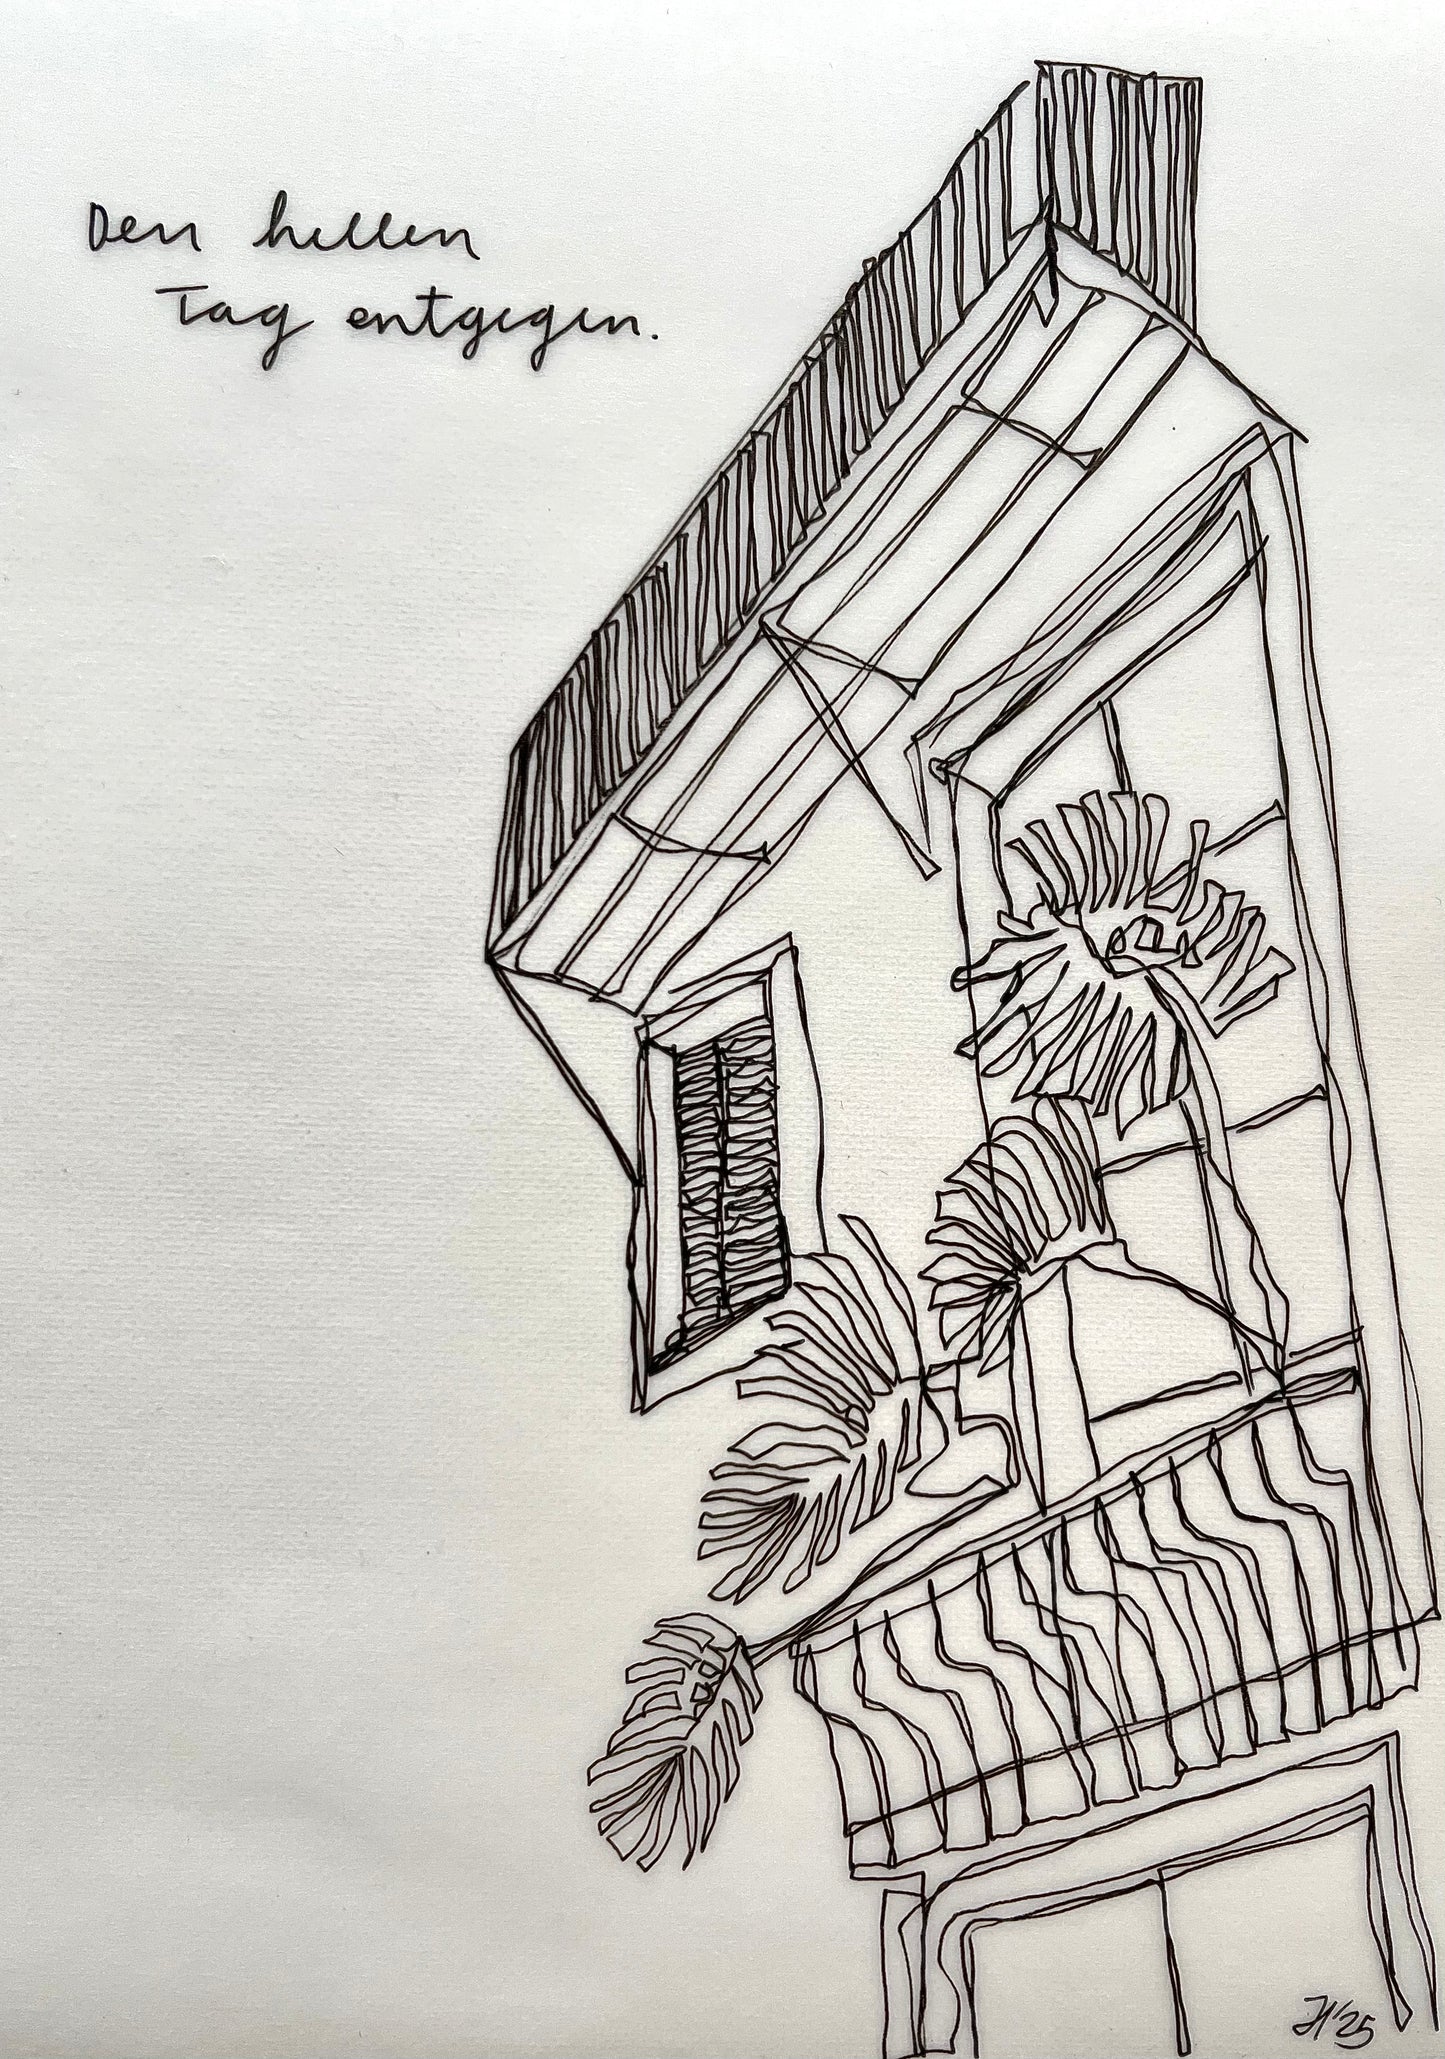 Den hellen
Tag entgegen.
JH'25